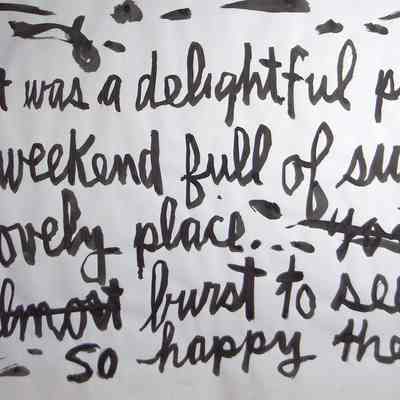 t was a delightful p
weekend full of su
ovely place... you
lmost burst to see
so happy the